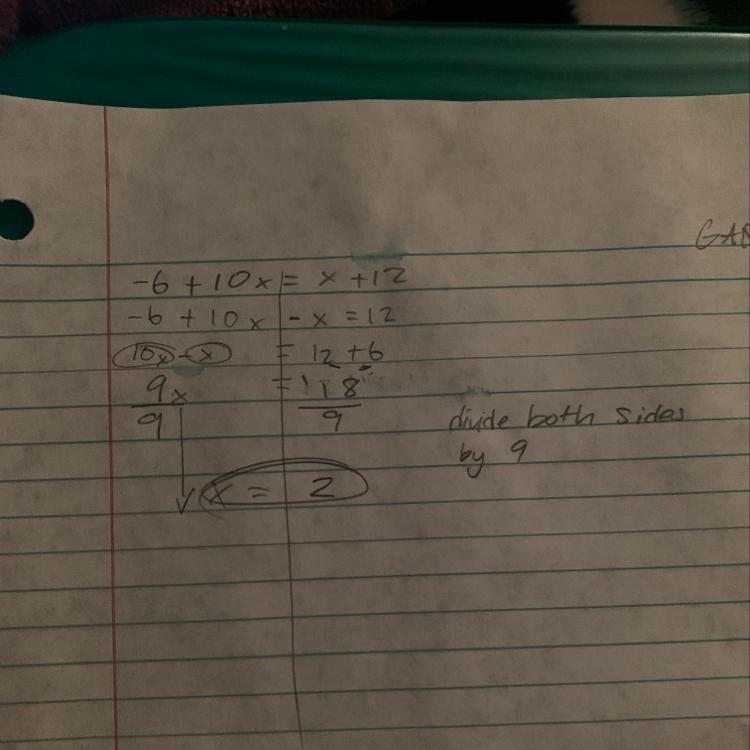 -6 + 10x = x + 12
-6 + 10x - x = 12
10x - x = 12 + 6
9x = 18
9 9
divide both sides
by 9
x = 2